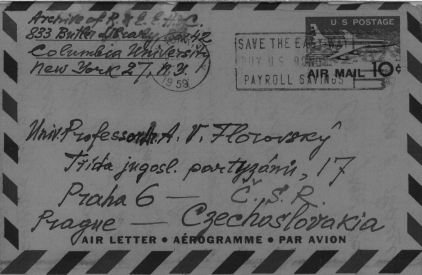 Archive of R & E E H & C.
833 Butler Library, Box 42
Columbia University
New York 27, N.Y.
1959
SAVE THE EASY WAY
BUY U.S. BONDS
PAYROLL SAVINGS
U S POSTAGE
AIR MAIL 10¢
Univ. Professor A. V. Florovský
Třída jugosl. partyzánů, 17
Praha 6 — Č.S.R.
Prague — Czechoslovakia
AIR LETTER • AÉROGRAMME • PAR AVION